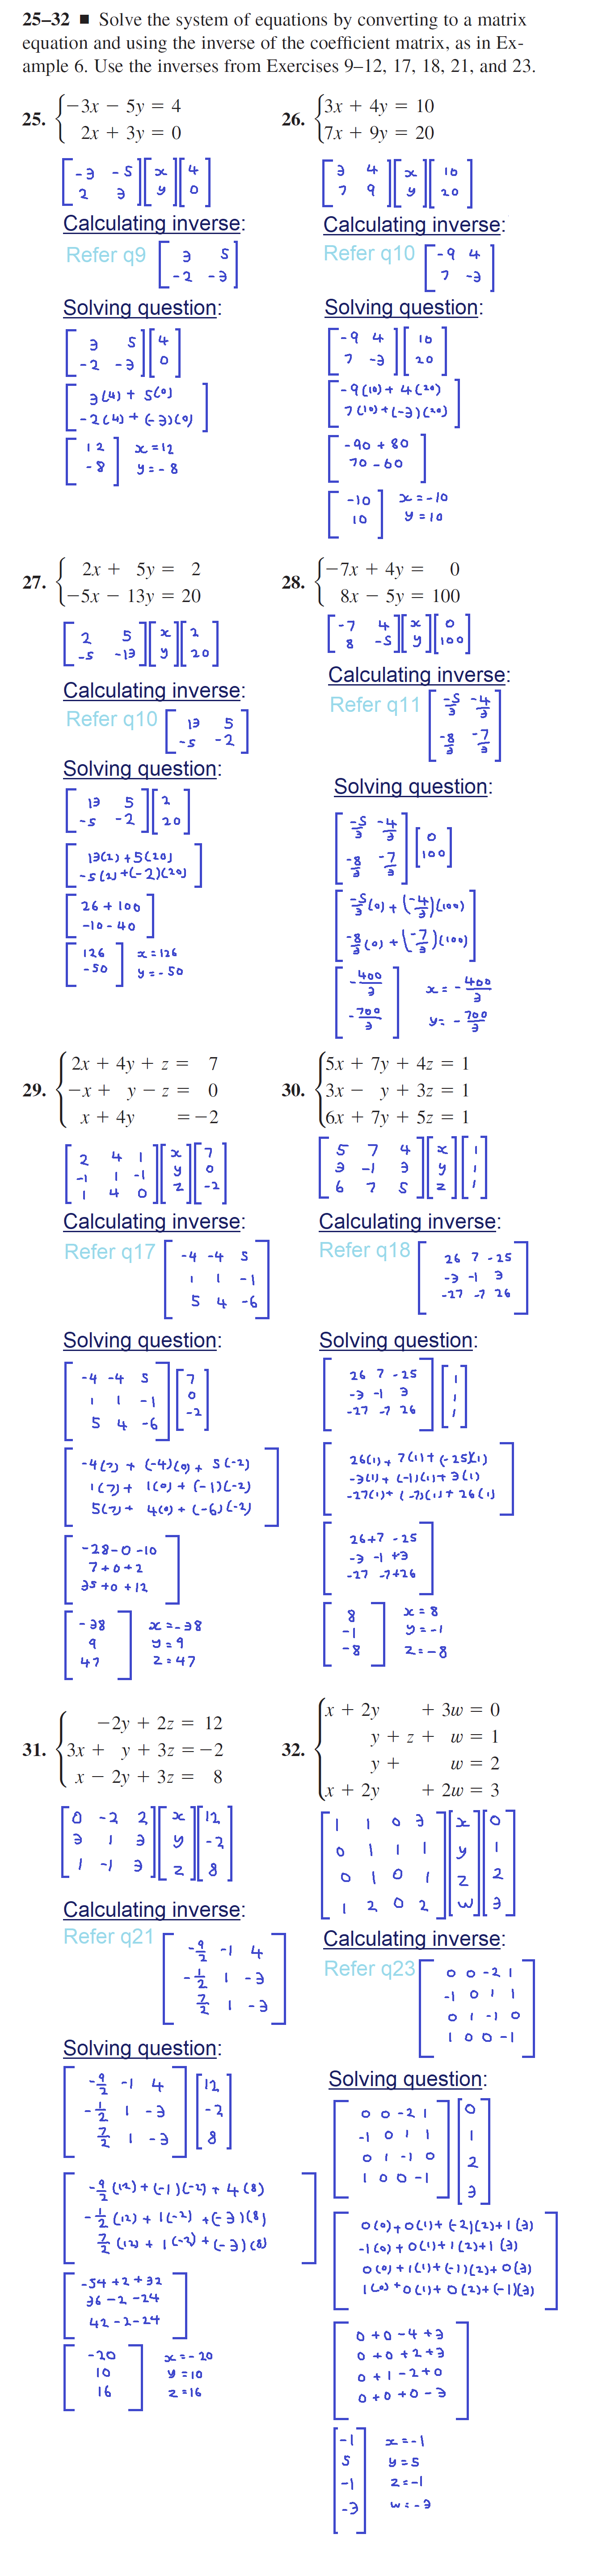 25–32 ■ Solve the system of equations by converting to a matrix
equation and using the inverse of the coefficient matrix, as in Ex-
ample 6. Use the inverses from Exercises 9–12, 17, 18, 21, and 23.
25. {−3x − 5y = 4
2x + 3y = 0
[-3 -5] [x] [4]
[2 3] [y] [0]
Calculating inverse:
Refer q9 [3 5]
[-2 -3]
Solving question:
[3 5] [4]
[-2 -3] [0]
[3(4) + 5(0)]
[-2(4) + (-3)(0)]
[12] x=12
[-8] y=-8
26. {3x + 4y = 10
7x + 9y = 20
[3 4] [x] [10]
[7 9] [y] [20]
Calculating inverse:
Refer q10 [-9 4]
[7 -3]
Solving question:
[-9 4] [10]
[7 -3] [20]
[-9(10) + 4(20)]
[7(10)+(-3)(20)]
[-90 + 80]
[70 - 60]
[-10] x=-10
[10] y=10
27. {2x + 5y = 2
−5x − 13y = 20
[2 5] [x] [2]
[-5 -13] [y] [20]
Calculating inverse:
Refer q10 [13 5]
[-5 -2]
Solving question:
[13 5] [2]
[-5 -2] [20]
[13(2)+5(20)]
[-5(2)+(-2)(20)]
[26+100]
[-10-40]
[126] x=126
[-50] y=-50
28. {−7x + 4y = 0
8x − 5y = 100
[-7 4] [x] [0]
[8 -5] [y] [100]
Calculating inverse:
Refer q11 [-5/3 -4/3]
[-8/3 -7/3]
Solving question:
[-5/3 -4/3] [0]
[-8/3 -7/3] [100]
[-5/3(0) + (-4/3)(100)]
[-8/3(0) + (-7/3)(100)]
[-400/3] x = -400/3
[-700/3] y = -700/3
29. {2x + 4y + z = 7
−x + y − z = 0
x + 4y = −2
[2 4 1] [x] [7]
[-1 1 -1] [y] [0]
[1 4 0] [z] [-2]
Calculating inverse:
Refer q17 [-4 -4 5]
[1 1 -1]
[5 4 -6]
Solving question:
[-4 -4 5] [7]
[1 1 -1] [0]
[5 4 -6] [-2]
[-4(7) + (-4)(0) + 5(-2)]
[1(7) + 1(0) + (-1)(-2)]
[5(7) + 4(0) + (-6)(-2)]
[-28-0-10]
[7+0+2]
[35+0+12]
[-38] x=-38
[9] y=9
[47] z=47
30. {5x + 7y + 4z = 1
3x − y + 3z = 1
6x + 7y + 5z = 1
[5 7 4] [x] [1]
[3 -1 3] [y] [1]
[6 7 5] [z] [1]
Calculating inverse:
Refer q18 [26 7 -25]
[-3 -1 3]
[-27 -7 26]
Solving question:
[26 7 -25] [1]
[-3 -1 3] [1]
[-27 -7 26] [1]
[26(1)+ 7(1)+(-25)(1)]
[-3(1)+ (-1)(1)+ 3(1)]
[-27(1)+ (-7)(1)+ 26(1)]
[26+7 -25]
[-3 -1 +3]
[-27 -7+26]
[8] x=8
[-1] y=-1
[-8] z=-8
31. {−2y + 2z = 12
3x + y + 3z = −2
x − 2y + 3z = 8
[0 -2 2] [x] [12]
[3 1 3] [y] [-2]
[1 -1 3] [z] [8]
Calculating inverse:
Refer q21 [-9/2 -1 4]
[-1/2 1 -3]
[7/2 1 -3]
Solving question:
[-9/2 -1 4] [12]
[-1/2 1 -3] [-2]
[7/2 1 -3] [8]
[-9/2(12)+(-1)(-2)+4(8)]
[-1/2(12)+1(-2)+(-3)(8)]
[7/2(12)+1(-2)+(-3)(8)]
[-54+2+32]
[36-2-24]
[42-2-24]
[-20] x=-20
[10] y=10
[16] z=16
32. {x + 2y + 3w = 0
y + z + w = 1
y + w = 2
x + 2y + 2w = 3
[1 1 0 3] [x] [0]
[0 1 1 1] [y] [1]
[0 1 0 1] [z] [2]
[1 2 0 2] [w] [3]
Calculating inverse:
Refer q23 [0 0 -2 1]
[-1 0 1 1]
[0 1 -1 0]
[1 0 0 -1]
Solving question:
[0 0 -2 1] [0]
[-1 0 1 1] [1]
[0 1 -1 0] [2]
[1 0 0 -1] [3]
[0(0)+0(1)+(-2)(2)+1(3)]
[-1(0)+0(1)+1(2)+1(3)]
[0(0)+1(1)+(-1)(2)+0(3)]
[1(0)+0(1)+0(2)+(-1)(3)]
[0+0-4+3]
[0+0+2+3]
[0+1-2+0]
[0+0+0-3]
[-1] x=-1
[5] y=5
[-1] z=-1
[-3] w=-3